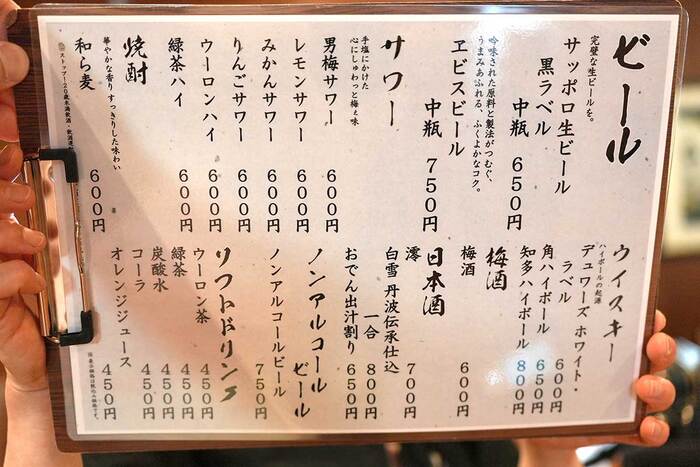 ビール
完璧な生ビールを。
サッポロ生ビール
黒ラベル
中瓶 650円
吟味された原料と製法がつむぐ、
うまみあふれる、ふくよかなコク。
ヱビスビール
中瓶 750円
サワー
手塩にかけた
心にしゅわっと梅ぇ味
男梅サワー 600円
レモンサワー 600円
みかんサワー 600円
りんごサワー 600円
ウーロンハイ 600円
緑茶ハイ 600円
焼酎
華やかな香りすっきりした味わい
和ら麦 600円
ウイスキー
ハイボールの起源
デュワーズ ホワイト・
ラベル 600円
角ハイボール 650円
知多ハイボール 800円
梅酒
梅酒 600円
日本酒
澪 700円
白雪 丹波伝承仕込
一合 800円
おでん出汁割り 650円
ノンアルコール
ビール
ノンアルコールビール 750円
ソフトドリンク
ウーロン茶 450円
緑茶 450円
炭酸水 450円
コーラ 450円
オレンジジュース 450円